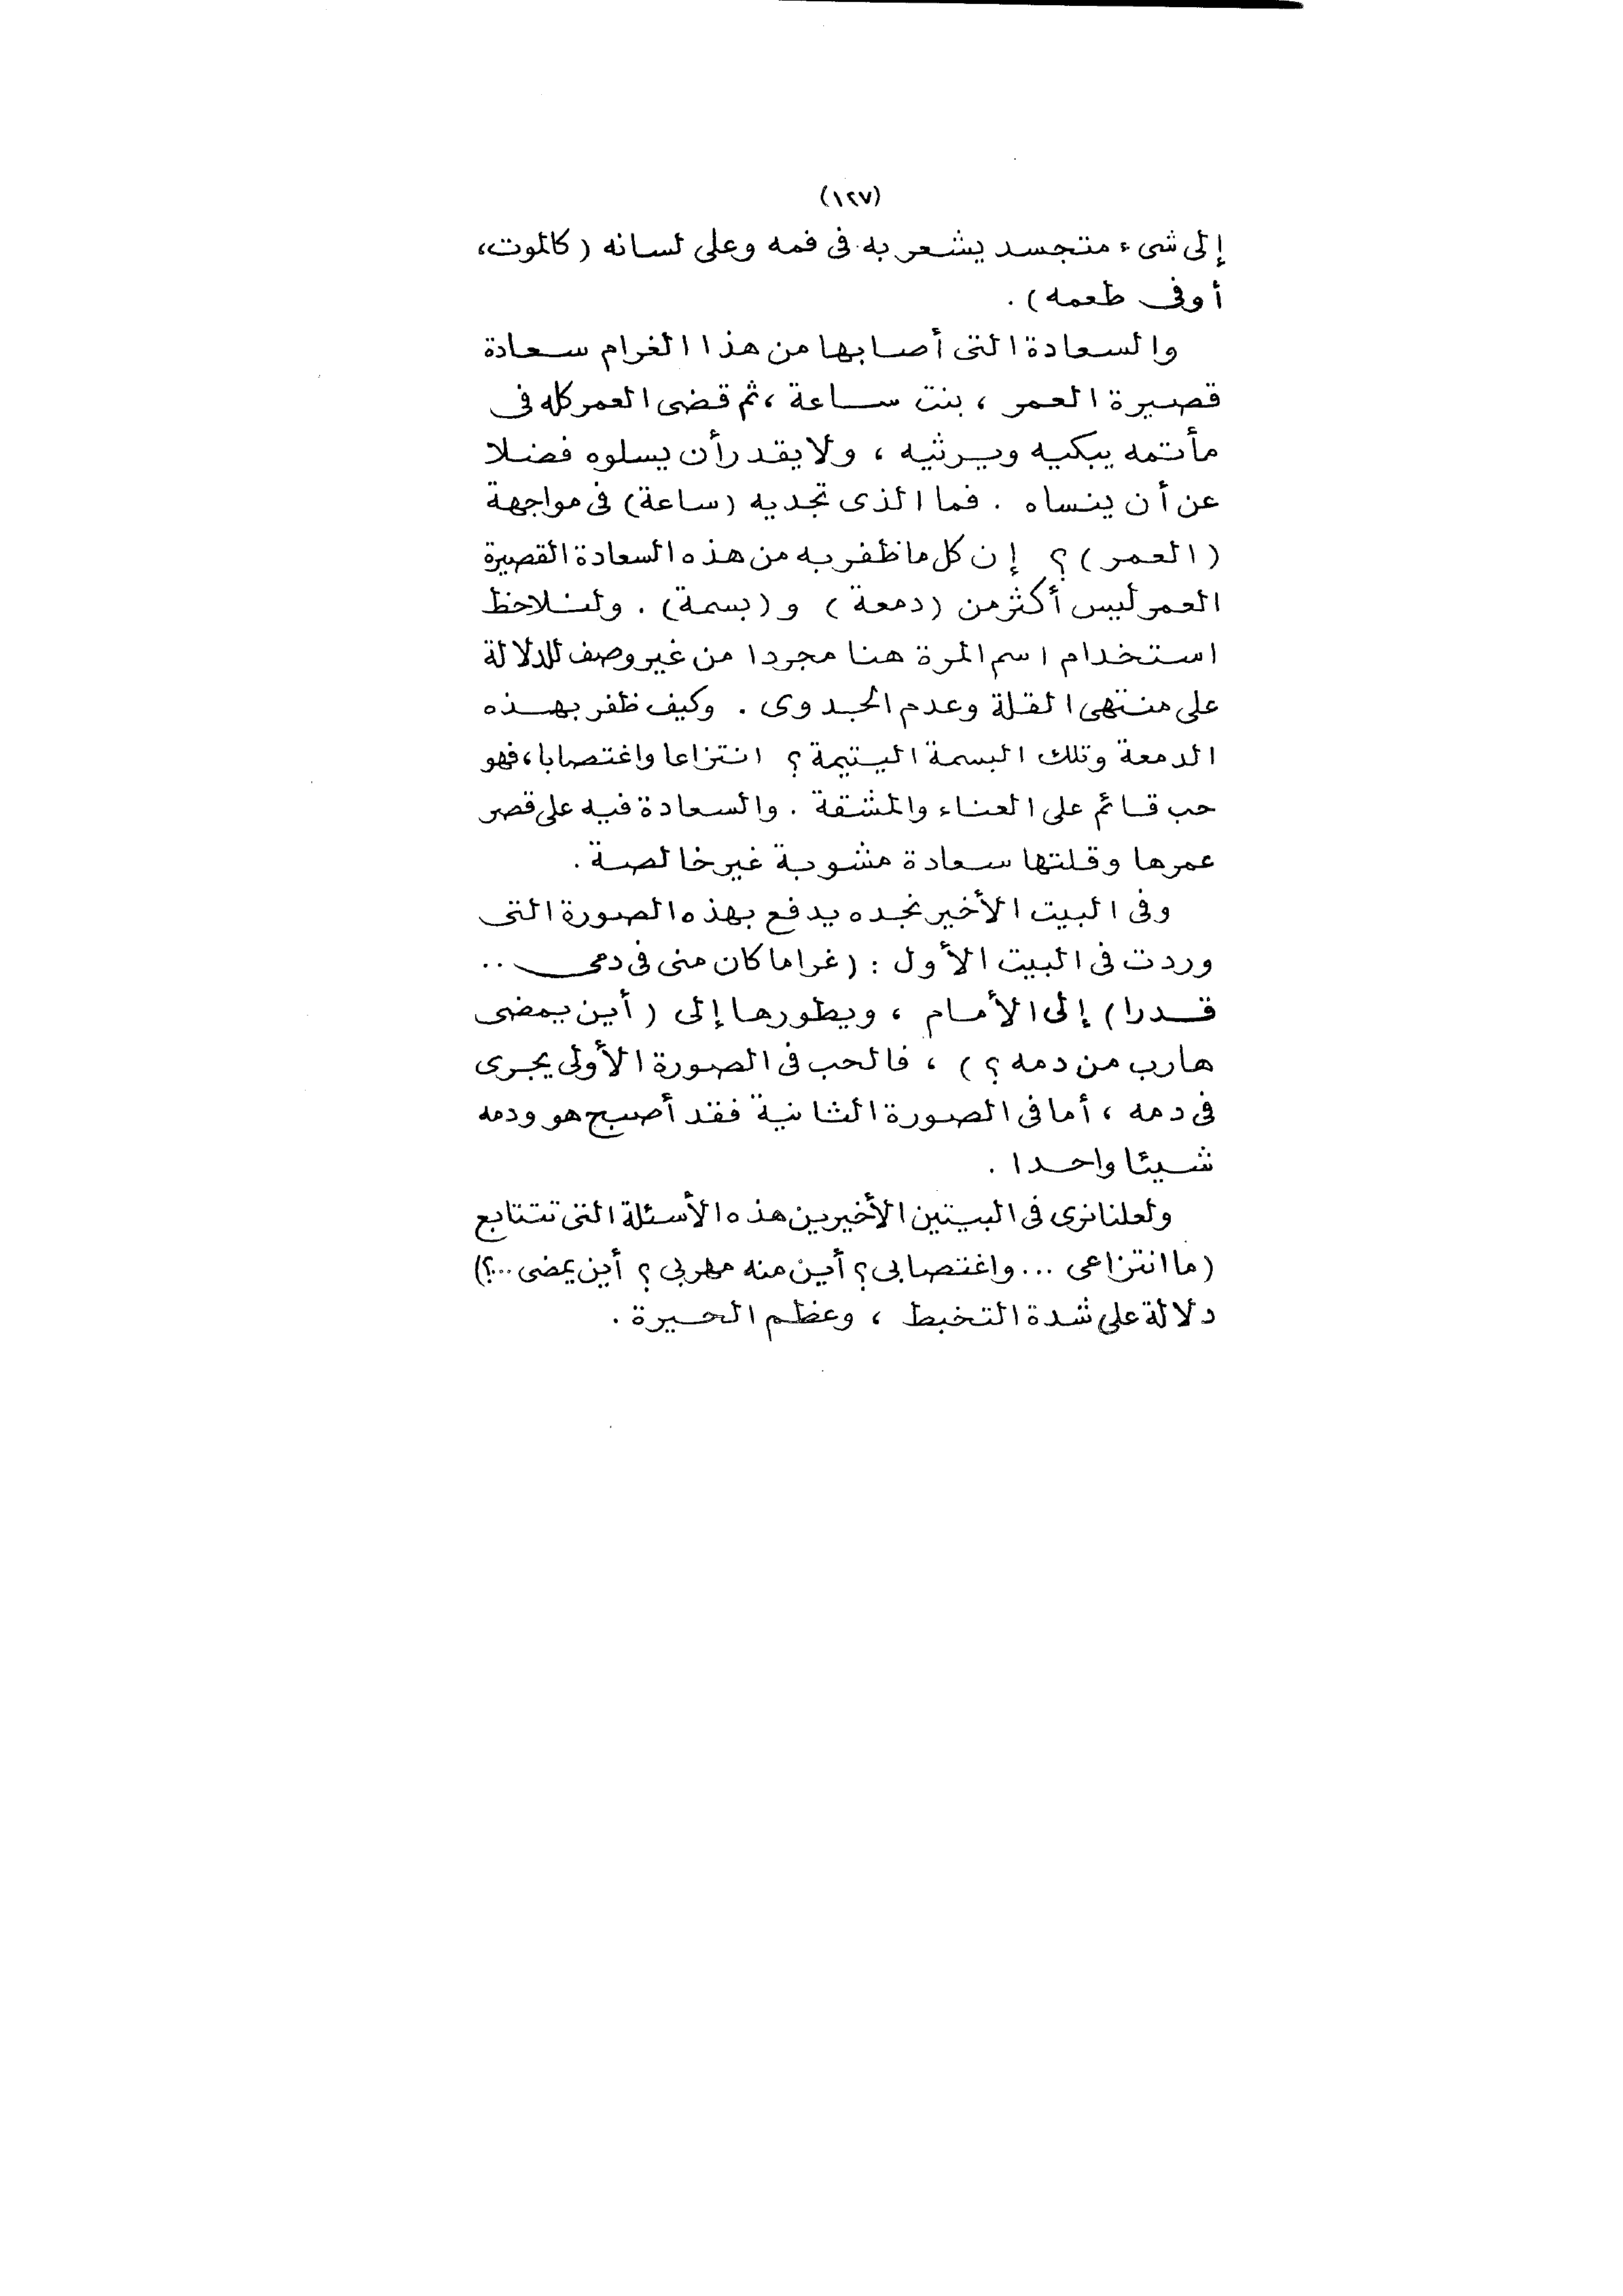 (١٢٧)
إلى شىء متجسد يشعر به فى فمه وعلى لسانه (كالموت،
أو فى طعمه) .
والسعادة التى أصابها من هذا الغرام سعادة
قصيرة العمر ، بنت ساعة ، ثم قضى العمر كله فى
مأتمه يبكيه ويرثيه ، ولا يقدر أن يسلوه فضلا
عن أن ينساه . فما الذى تجديه (ساعة) فى مواجهة
(العمر) ؟ إن كل ما ظفر به من هذه السعادة القصيرة
العمر ليس أكثر من (دمعة) و (بسمة) . ولنلاحظ
استخدام اسم المرة هنا مجردا من غير وصف للدلالة
على منتهى القلة وعدم الجدوى . وكيف ظفر بهذه
الدمعة وتلك البسمة اليتيمة ؟ انتزاعا واغتصابا ، فهو
حب قائم على العناء والمشقة . والسعادة فيه على قصر
عمرها وقلتها سعادة مشوبة غير خالصة .
وفى البيت الأخير نجده يدفع بهذه الصورة التى
وردت فى البيت الأول : (غراما كان منى فى دمى ..
قدرا) إلى الأمام ، ويطورها إلى (أين يمضى
هارب من دمه ؟) ، فالحب فى الصورة الأولى يجرى
فى دمه ، أما فى الصورة الثانية فقد أصبح هو ودمه
شيئا واحدا .
ولعلنا نرى فى البيتين الأخيرين هذه الأسئلة التى تتتابع
(ما انتزاعى ... واغتصابى ؟ أين منه مهربى ؟ أين يمضى ...؟)
دلالة على شدة التخبط ، وعظم الحيرة .